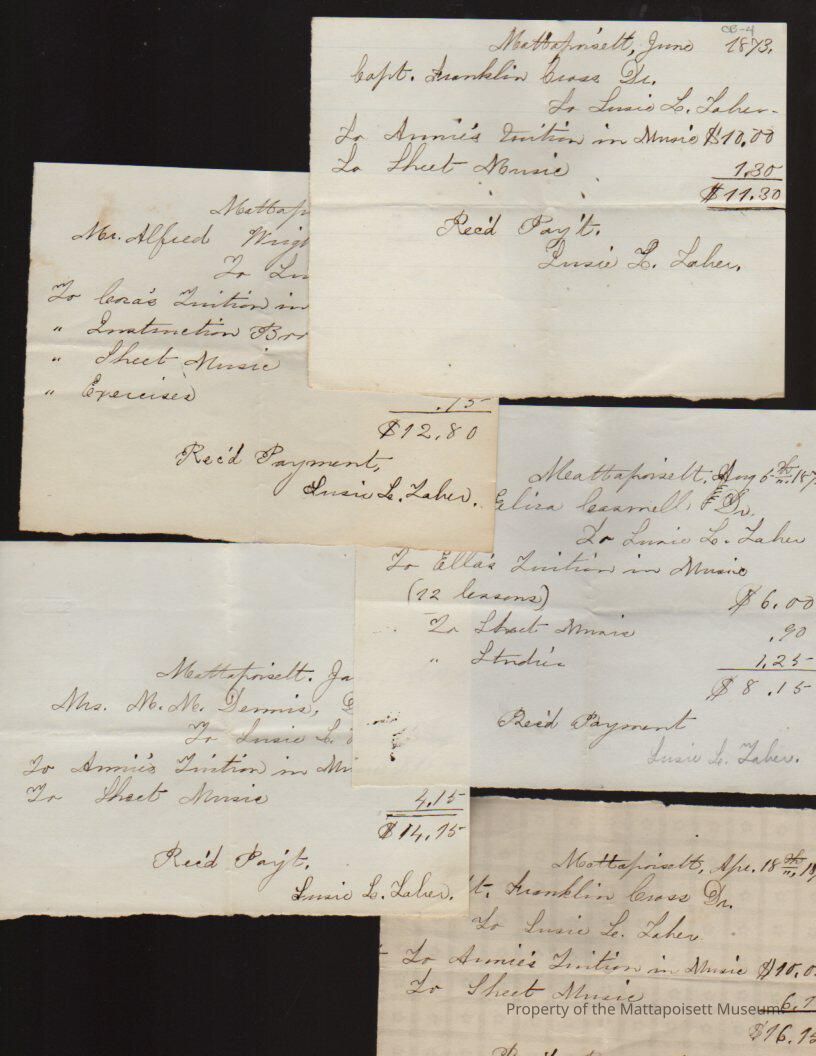 CB-4
Mattapoisett, June 1873.
Capt. Franklin Cross Dr.
To Susie L. Taber.
To Annie's Tuition in Music $10.00
To Sheet Music 1.30
$11.30
Rec'd Pay't.
Susie L. Taber.
Mattap
Mr. Alfred Wrig
To Su
To Cora's Tuition in
" Instruction Boo
" Sheet Music
" Exercises
.15
$12,80
Rec'd Payment,
Susie L. Taber.
Mattapoisett, Aug 5th 187
Eliza Dr.
To Susie L. Taber
To Ella's Tuition in Music
(12 lessons) $6.00
To Sheet Music .90
" Studies 1.25
$8.15
Rec'd Payment
Susie L. Taber.
Mattapoisett. Ja
Mrs. M. M. Dennis,
To Susie L.
To Annie's Tuition in Mu
To Sheet Music 4.15
$14.15
Rec'd Pay't.
Susie L. Taber.
Mattapoisett, Apr. 18th, 18
't. Franklin Cross Dr.
To Susie L. Taber
To Annie's Tuition in Music $10.0
To Sheet Music 6.1
$16.15
Property of the Mattapoisett Museum